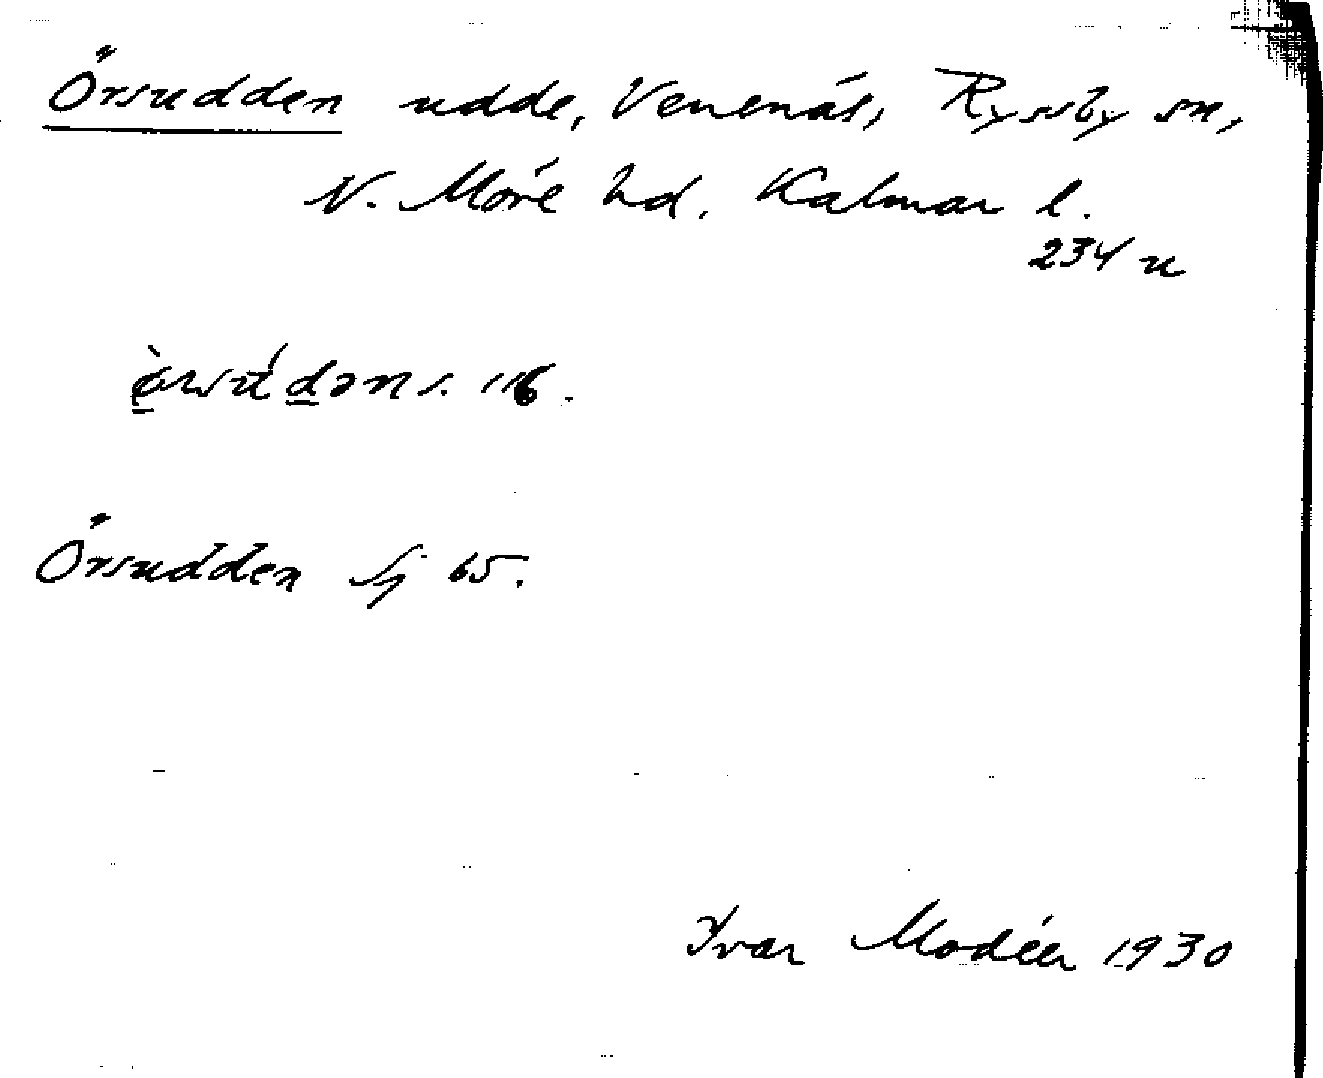 Örsudden udde, Venenäs, Ryssby sn,
N. Möre hd. Kalmar l.
234 u
s. 116.
Örsudden Sj 65.
Ivar Modéer 1930